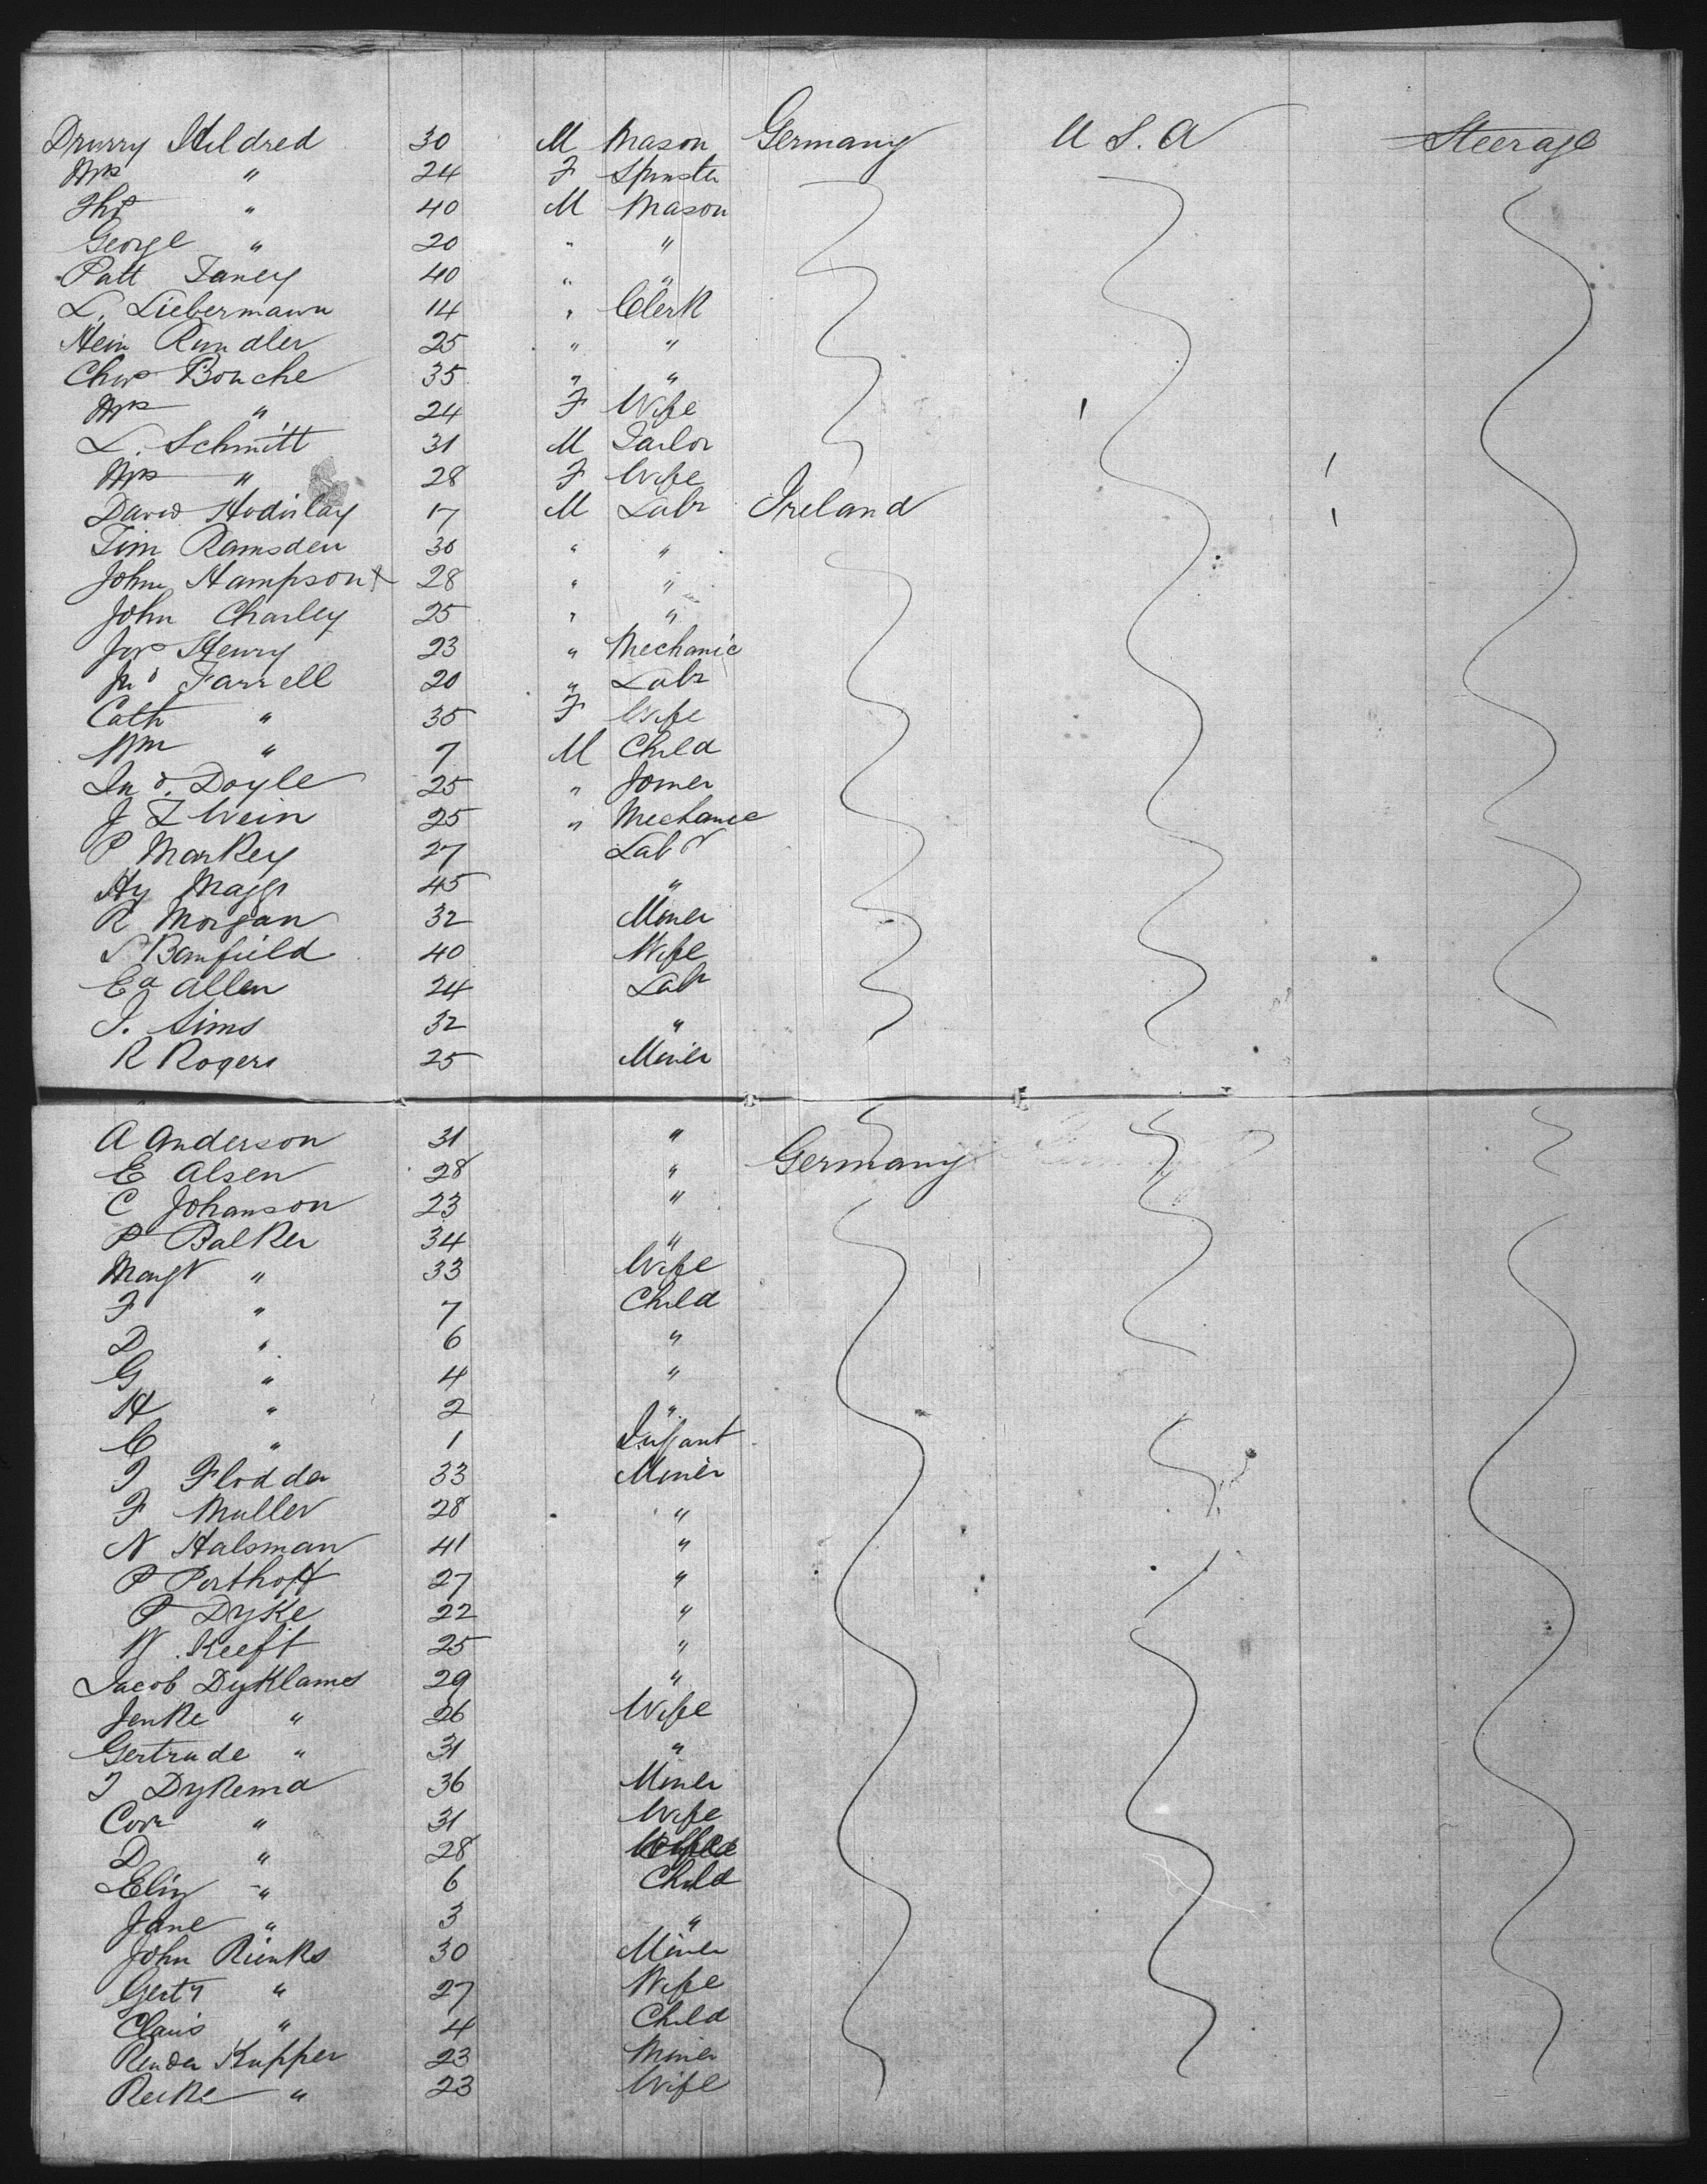 Drurry Hildred 30 M Mason Germany U.S.A Steerage
Mrs " 24 F Spinster
Ths " 40 M Mason
George " 20 " "
Patt Janey 40 " "
L. Liebermann 14 " Clerk
Hein Rundler 25 " "
Chas Bouche 35 " "
Mrs " 24 F Wife
L. Schmitt 31 M Tailor
Mrs " 28 F Wife
David 17 M Labr Ireland
Tim Ramsden 30 " "
John Hampson 28 " "
John Charley 25 " "
Jos Henry 23 " Mechanic
Jno Farrell 20 " Labr
Cath " 35 F Wife
Wm " 7 M Child
Jno. Doyle 25 " Joiner
J 25 " Mechanic
P Markey 27 Labr
Hy Maggs 45 "
R Morgan 32 Miner
S Bamfield 40 Wife
Ed Allen 24 Labr
J. Sims 32 "
R Rogers 25 Miner
A Anderson 31 "
E Alsen 28 " Germany
C Johanson 23 "
P Balker 34 "
Margt " 33 Wife
F " 7 Child
D " 6 "
G " 4 "
H " 2 "
C " 1 Infant
J Flodder 33 Miner
F Muller 28 "
N Halsman 41 "
P Porthoff 27 "
P Dyke 22 "
W. Keeft 25 "
Jacob Dyklames 29 "
Jenke " 26 Wife
Gertrude " 31 "
J Dykema 36 Miner
Cor " 31 Wife
D " 28
Eliz " 6 Child
Jane " 3 "
John Rienks 30 Miner
Gert " 27 Wife
Claus " 4 Child
Render Kupper 23 Miner
Reike " 23 Wife